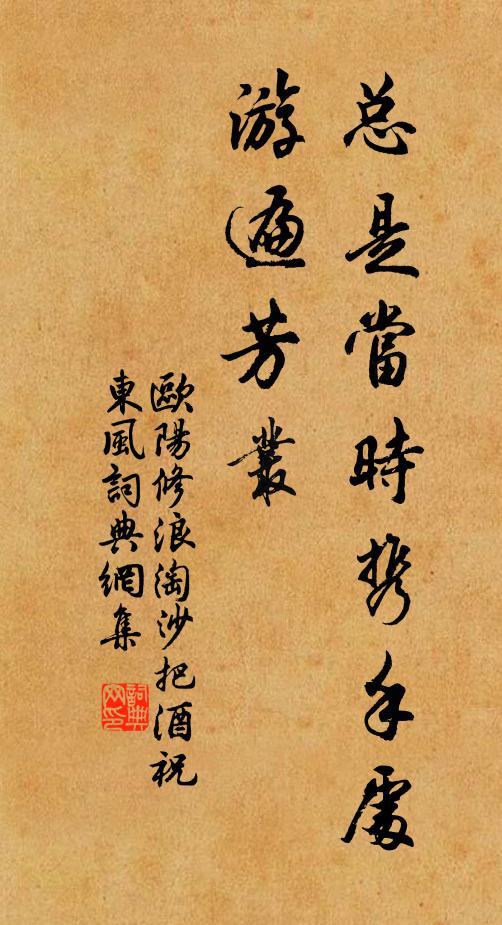 总是當時携手處
游遍芳叢
歐陽修浪淘沙把酒祝
東風詞典網集
詞典
网印